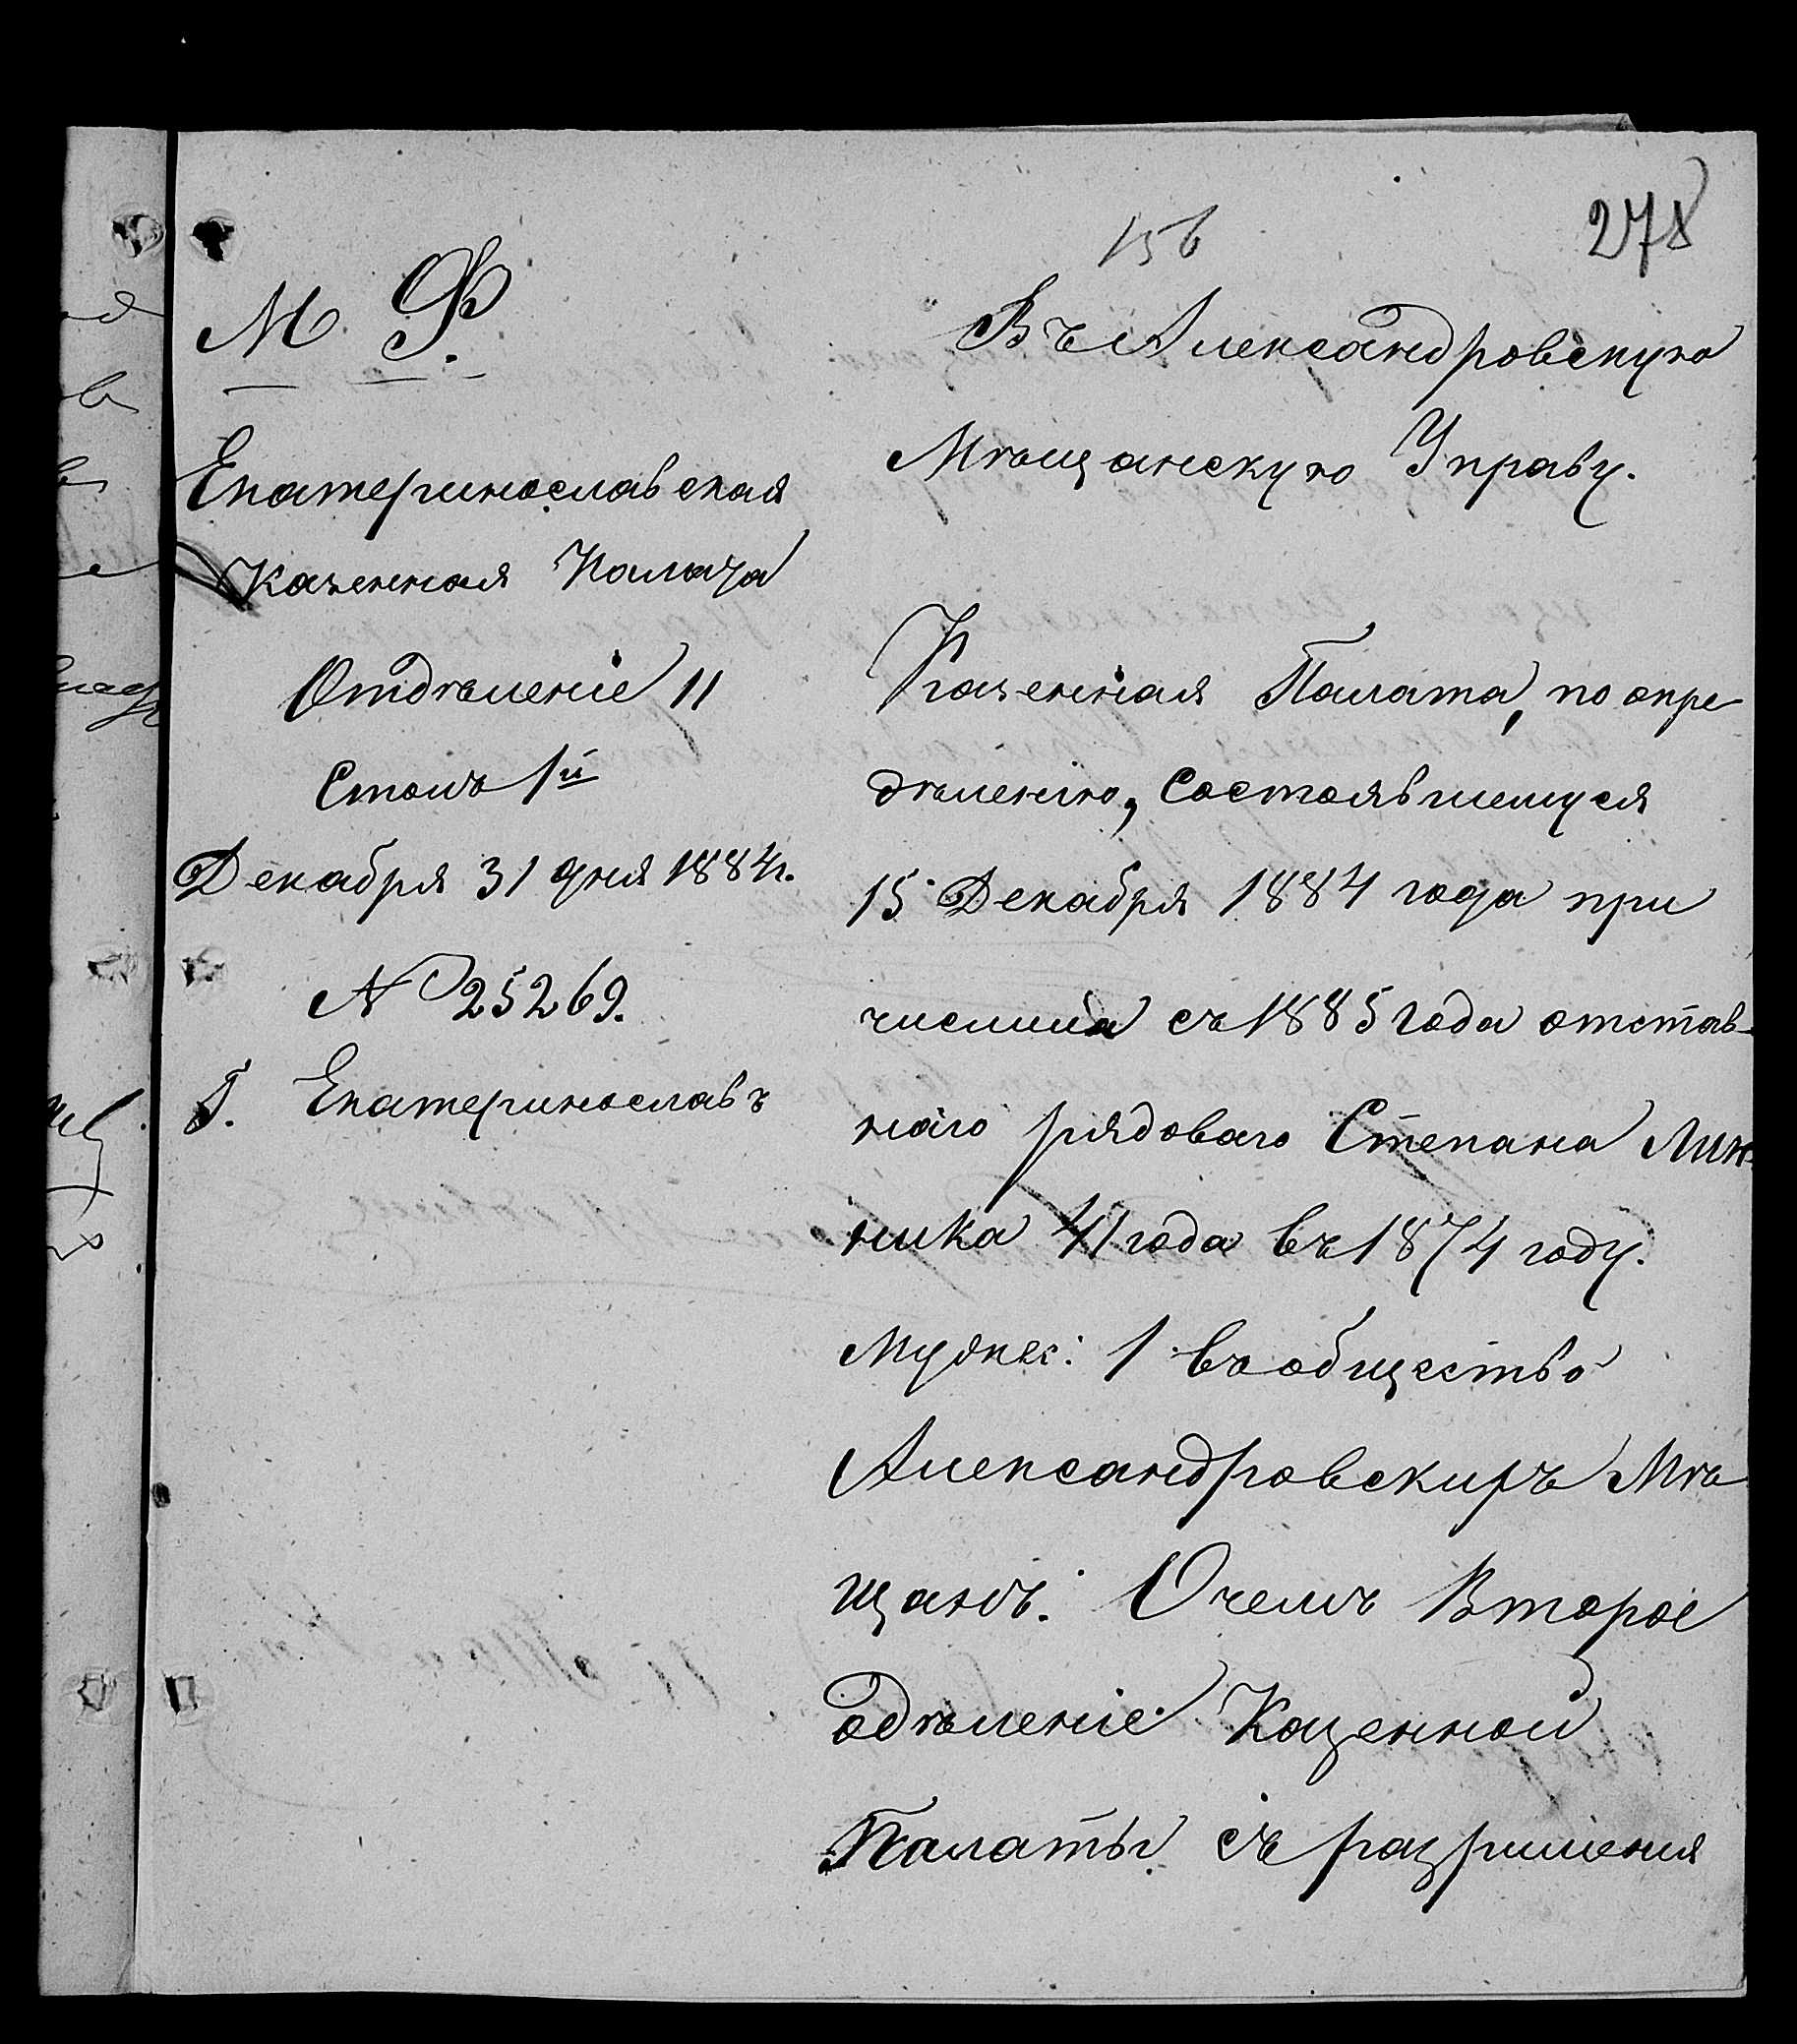 156
278
М. Ф.
Екатеринославская
Казенная Палата
Отдѣленіе II
Столъ 1й
Декабря 31 дня 1884 г.
№ 25269.
Г. Екатеринославъ
Въ Александровскую
Мѣщанскую Управу.
Казенная Палата, по опре
дѣленію, Состоявшемуся
15 Декабря 1884 года при
числила съ 1885 года отстав-
наго рядоваго Степана Лин
ника 41 года въ 1874 году.
Муж пес: 1 въ общество
Александровскихъ Мѣ
щанъ. О чемъ Второе
Одѣленіе Казенной
Палаты съ разришения